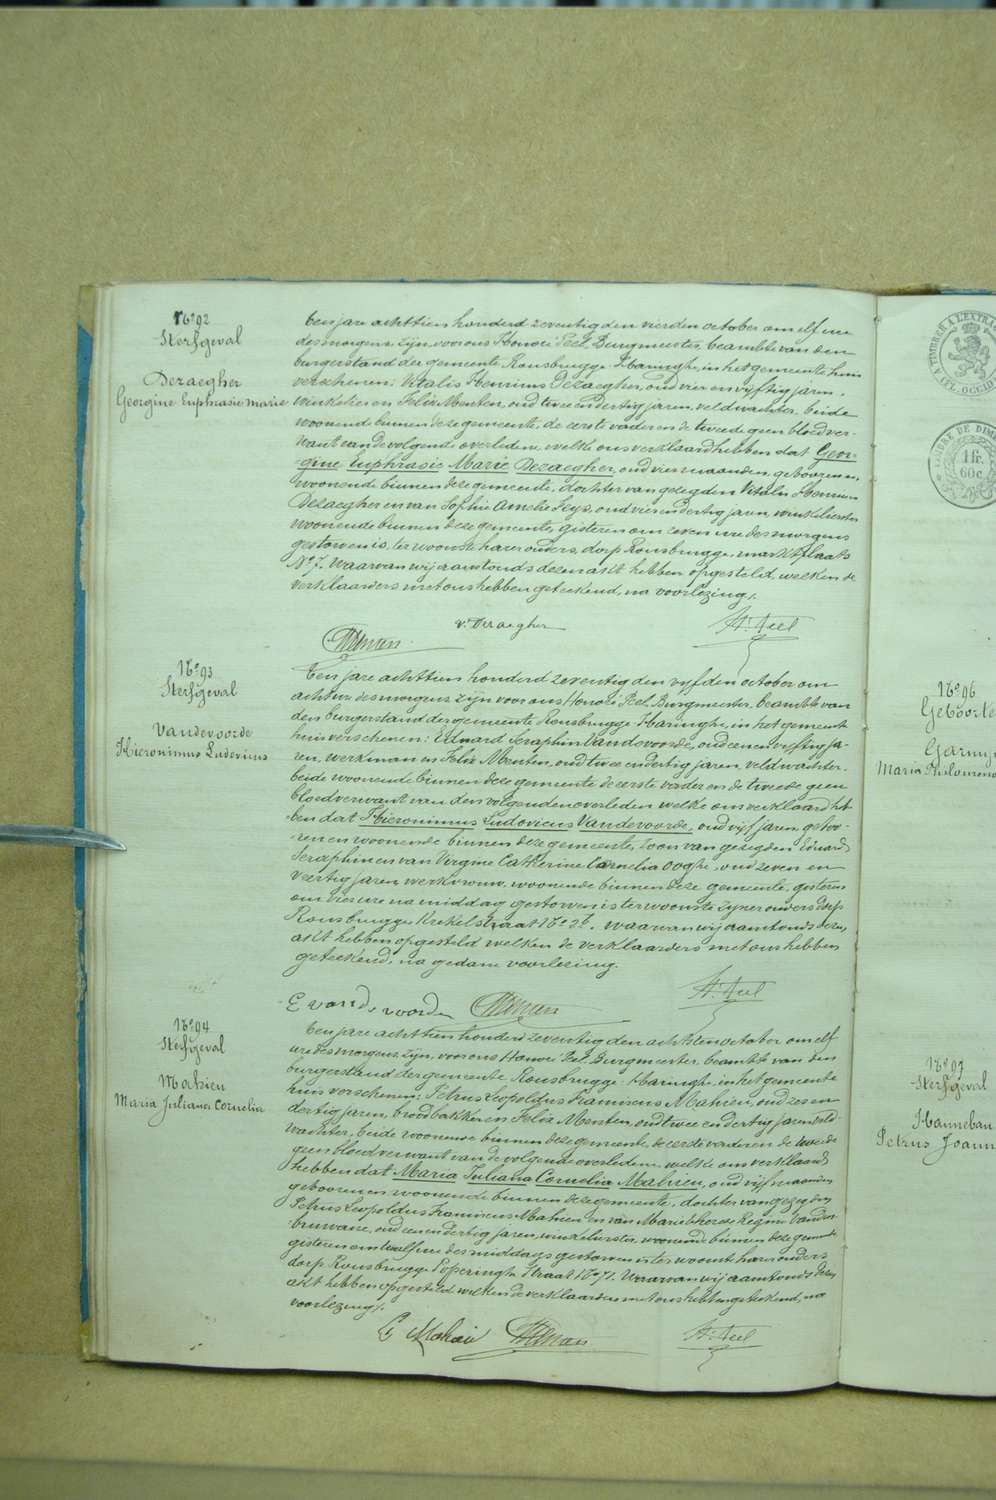 N° 92
Sterfgeval
Dezaegher
Georgine Euphrasie Marie
Ten jare achttien honderd zeventig den vierden october om elf ure
des morgens zijn, voor ons Honoré Feel, Burgmeester, beambte van den
burgerstand der gemeente Rousbrugge-Haringhe, in het gemeente huis
verschenen: Vitalis Henricus Dezaegher, oud vier en vijftig jaren,
winkelier en Felix Menten, oud twee en dertig jaren, veldwachter, beide
woonende binnen deze gemeente, de eerste vader en de tweede geen bloedver-
want van de volgende overledene welke ons verklaard hebben dat Geor-
gine Euphrasie Marie Dezaegher, oud vier maanden, geboren en
woonende binnen deze gemeente, dochter van gezegden Vitalis Henricus
Dezaegher en van Sophie Amelie Leys, oud vier en dertig jaren, winkelierster
woonende binnen deze gemeente, gisteren om zeven ure des morgens
gestorven is, ter woonste harer ouders, dorp Rousbrugge, marktplaats
N° 7. Waarvan wij aanstonds dezen akt hebben opgesteld, welken de
verklaarders met ons hebben geteekend, na voorlezing.
v. Dezaegher
Menten
H. Feel
N° 93
Sterfgeval
Vandevoorde
Hieronimus Ludovicus
Ten jare achttien honderd zeventig den vijfden october om
acht ure des morgens zijn voor ons Honoré Feel, Burgmeester, beambte van
den burgerstand der gemeente Rousbrugge-Haringhe, in het gemeente
huis verschenen: Eduard Seraphin Vandevoorde, oud een en vijftig ja-
ren, werkman en Felix Menten, oud twee en dertig jaren, veldwachter,
beide woonende binnen deze gemeente de eerste vader en de tweede geen
bloedverwant van den volgenden overleden welke ons verklaard heb-
ben dat Hieronimus Ludovicus Vandevoorde, oud vijf jaren, gebo-
ren en woonende binnen deze gemeente, zoon van gezegden Eduard
Seraphin en van Virginie Catherine Cornelia Ooghe, oud zeven en
veertig jaren, werkvrouw, woonende binnen deze gemeente, gisteren
om vier ure na middag gestorven is ter woonste zijner ouders dorp
Rousbrugge, Krekelstraat N° 2. Waarvan wij aanstonds dezen
akt hebben opgesteld welken de verklaarders met ons hebben
geteekend, na gedane voorlezing.
E vandevoorde
Menten
H. Feel
N° 94
Sterfgeval
Mahieu
Maria Juliana Cornelia
Ten jare achttien honderd zeventig den achtsten october om elf
ure des morgens zijn, voor ons Honoré Feel, Burgmeester, beambte van den
burgerstand der gemeente Rousbrugge-Haringhe, in het gemeente
huis verschenen: Petrus Leopoldus Franciscus Mahieu, oud zes en
dertig jaren, broodbakker en Felix Menten, oud twee en dertig jaren veld-
wachter, beide woonende binnen deze gemeente de eerste vader en de tweede
geen bloedverwant van de volgende overledene, welke ons verklaard
hebben dat Maria Juliana Cornelia Mahieu, oud vijf maanden
geboren en woonende binnen deze gemeente, dochter van gezegden
Petrus Leopoldus Franciscus Mahieu en van Marie Therese Regina Vanden-
bruwaene, oud een en dertig jaren, winkelierster, woonende binnen deze gemeente
gisteren om twaalf ure des middags gestorven is ter woonste harer ouders
dorp Rousbrugge Poperinghe Straat N° 71. Waarvan wij aanstonds dezen
akt hebben opgesteld welken de verklaarders met ons hebben geteekend, na
voorlezing.
L Mahieu
Menten
H. Feel
TIMBRE A L'EXTRA
TIMBRE DE DIM
1 fr.
60 c.
N° 96
Geboorte
Maria Philomena
N° 97
Sterfgeval
Hannebau
Petrus Joann